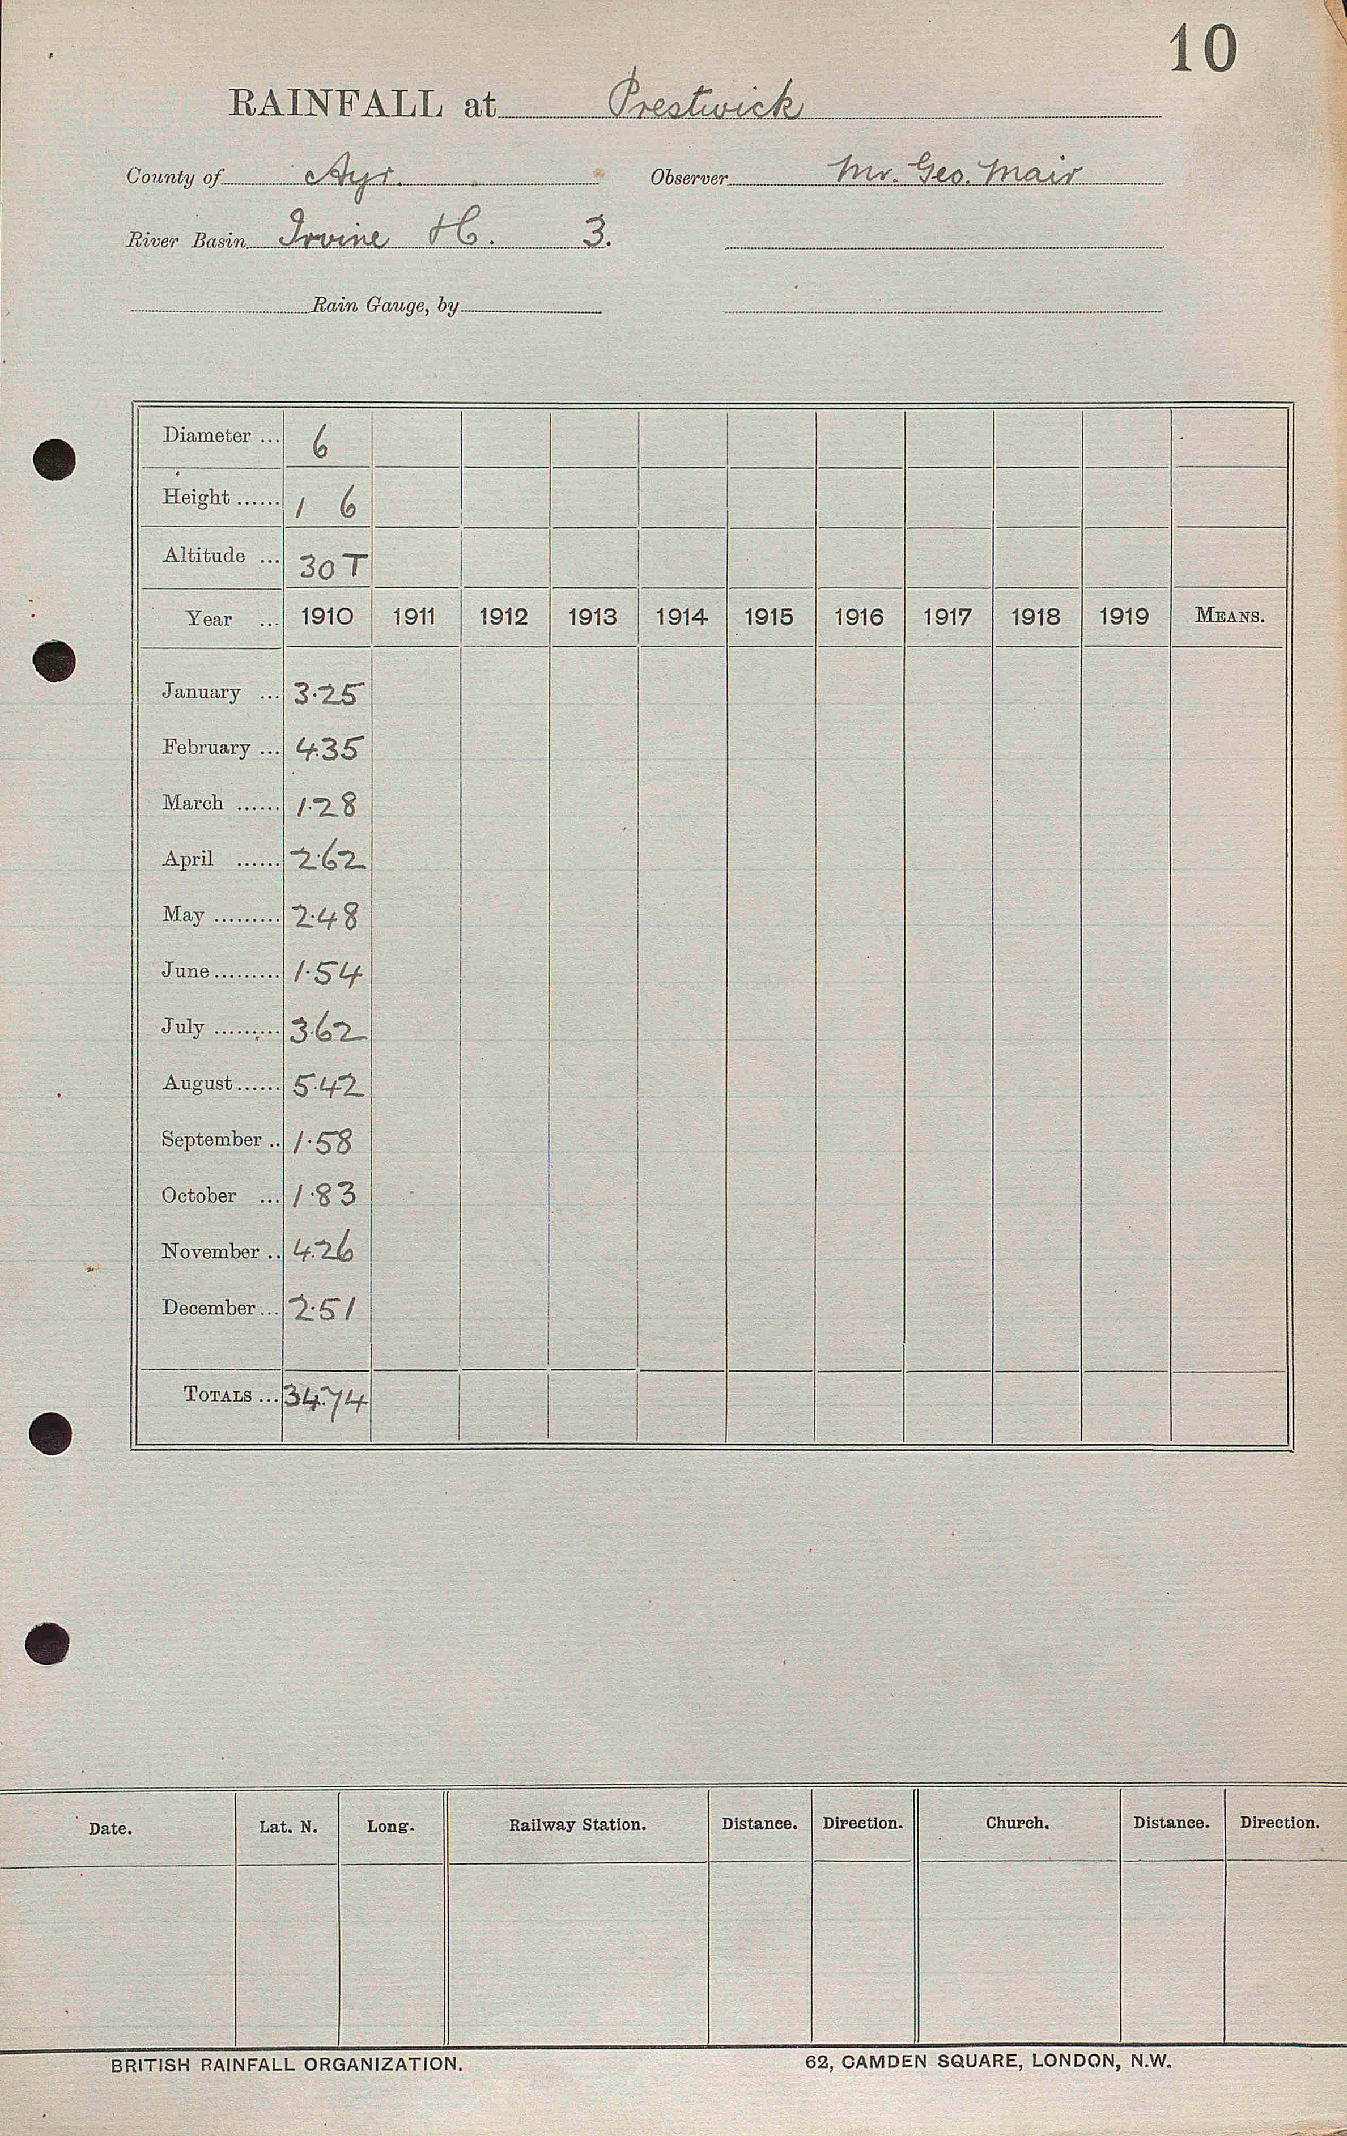 10
RAINFALL at Prestwick
County of Ayr. Observer Mr. Geo. Mair
River Basin Irvine H. 3.
Rain Gauge, by
Diameter ... 6
Height ...... 1 6
Altitude ... 30 T
Year ... 1910 1911 1912 1913 1914 1915 1916 1917 1918 1919 MEANS.
January ... 3.25
February ... 4.35
March ...... 1.28
April ...... 2.62
May ......... 2.48
June ......... 1.54
July ......... 3.62
August ...... 5.42
September .. 1.58
October ... 1.83
November .. 4.26
December ... 2.51
TOTALS ... 34.74
Date. Lat. N. Long. Railway Station. Distance. Direction. Church. Distance. Direction.
BRITISH RAINFALL ORGANIZATION. 62, CAMDEN SQUARE, LONDON, N.W.